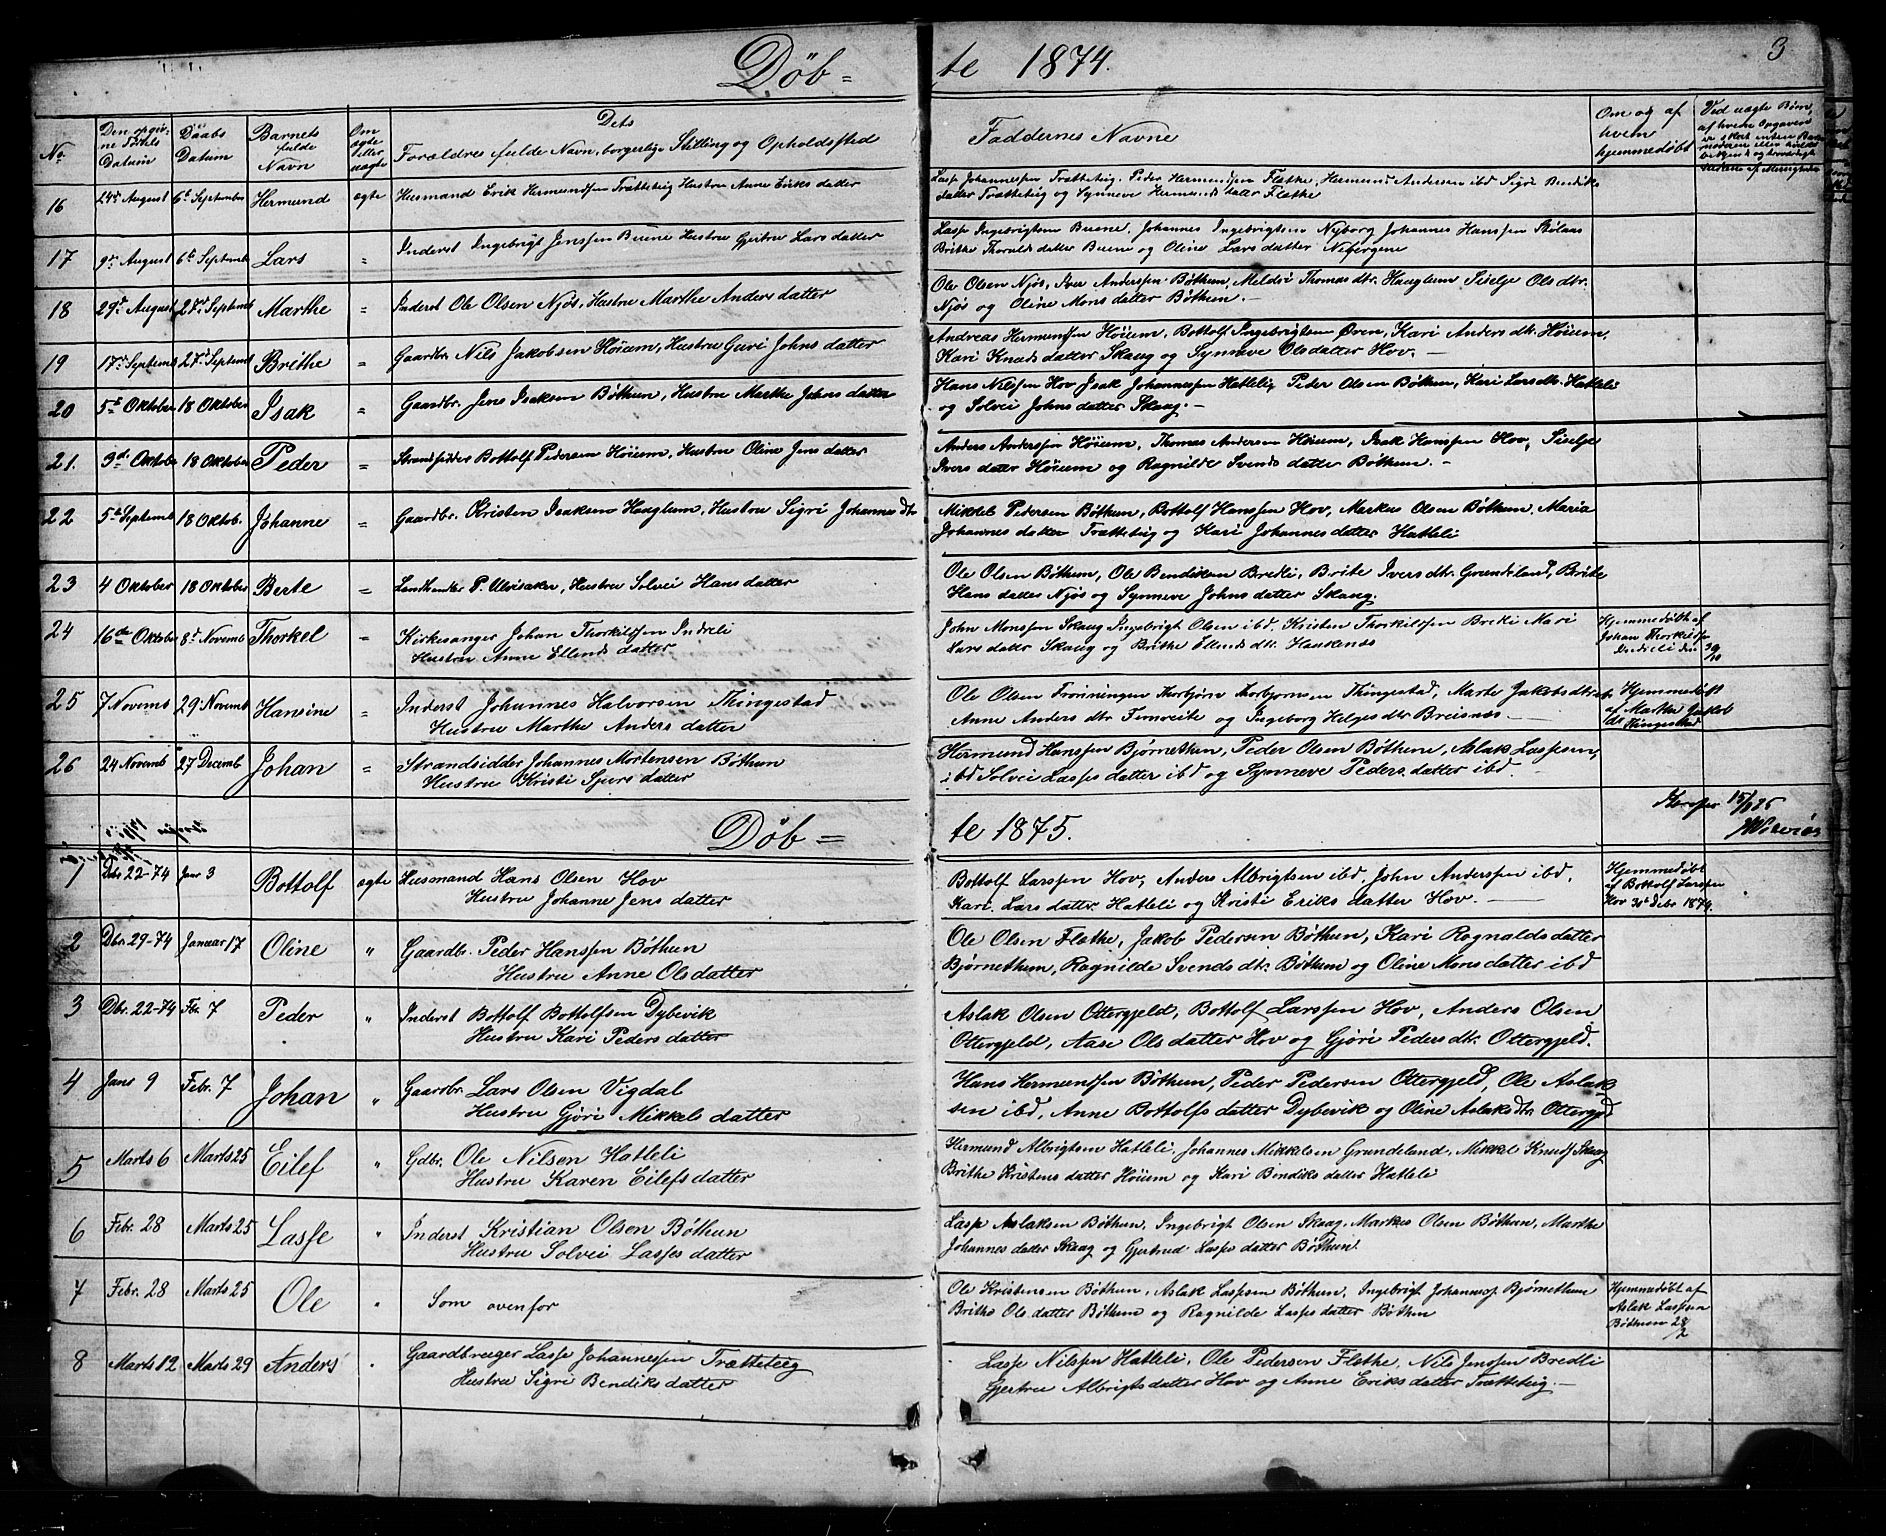 Døb= te 1874.
3
No
Den opgivne Fødsels Datum
Daabs Datum
Barnets fulde Navn
Om ægte eller uægte
Dets
Forældres fulde Navn, borgerlige Stilling og Opholdssted
Faddernes Navne
Om og af hvem hjemmedøbt
Ved uægte Børn, af hvem Opgaven er skeet
16 24de August 6te September Hermund ægte Husmand Erik Hermundsen Trætteteig Hustru Anne Eriks datter
Lasse Johannessen Trætteteig, Peder Hermundsen Flæthe, Hermund Andersen ibd Sigri Bendiks
datter Trætteteig og Synneve Hermunds datter Flæthe
17 9de August 6te Septemb Lars " Inderst Ingebrigt Jenssen Buene Hustru Gjertru Lars datter
Lasse Ingebrigtsen Buene, Johannes Ingebrigtsen Nyborg Johannes Hanssen
Brithe Thorvalds datter Buene og Oline Lars datter Nebergene
18 29de August 27de Septemb Marthe " Inderst Ole Olsen Njøs, Hustru Marthe Anders datter
Ole Olsen Njøs, Iver Anderssen Bøthun, Meldri Thomas dtr. Hauglum Siselje Ols dtr.
Njøs og Oline Mons datter Bøthun. —
19 17de Septemb 27de Septemb Brithe " Gaardbr. Nils Jakobsen Høium, Hustru Guri Johns datter
Andreas Hermundsen Høium, Bottolf Ingebrigtsen Øren, Kari Anders dtr. Høium,
Kari Knuds datter Skaug og Synneve Olsdatter Hov. —
20 5te Oktober 18 Oktober Isak " Gaardbr. Jens Isaksen Bøthun, Hustru Marthe Johns datter
Hans Nilssen Hov Isak Johannessen Hatleli, Peder Olsen Bøthun, Kari Lars dtr. Hatleli
og Solvei Johns datter Skaug. —
21. 3de Oktober 18 Oktober Peder " Strandsidder Bottolf Pedersen Høium, Hustru Oline Jens datter
Anders Anderssen Høium, Thomas Andersen Høium, Isak Hanssen Hov, Siselje
Ivers datter Høium og Ragnilde Svends datter Bøthun. —
22 5te Septemb 18 Oktob. Johanne " Gaardbr. Kristen Isaksen Hauglum, Hustru Sigri Johannes dtr
Mikkel Pedersen Bøthun, Bottolf Hanssen Hov, Markus Olsen Bøthun, Maria
Johannes datter Trætteteig og Kari Johannes datter Hatleli
23 4 Oktober 18 Oktober Berte " Landhandler P. Ulvisaker, Hustru Solvei Hans datter
Ole Olsen Bøthun, Ole Bendiksen Bredli, Brite Ivers dtr. Grundeland, Brite
Hans datter Njøs og Synneve Johns datter Skaug.
24 16de Oktober 8de Novemb Thorkel " Kirkesanger Johan Thorkilssen Indreli
Hustru Anne Ellends datter
John Monssen Skaug Ingebrigt Olsen ibd, Kristen Thorkilssen Bredli Mari
Lars datter Skaug og Brithe Ellends dtr. Haukenæs
Hjemmedøbt af
Johan Thorkilssen
Indreli den
25 7 Novemb 29 Novemb Hansine " Inderst Johannes Halvorsen Thingestad
Hustru Marthe Anders datter
Ole Olsen Frønningen Thorbjørn Thorbjørnsen Thingestad, Marte Jakobs dtr
Anne Anders dtr Fimreite og Ingeborg Helges dtr Breisnæs —
Hjemmedøbt
af Marthe Jakobs
dtr Thingestad
26 24 Novemb 27 Decemb Johan " Strandsidder Johannes Mortensen Bøthun
Hustru Kristi Sjurs datter
Hermund Hanssen Bjørnethun, Peder Olsen Bøthun, Aslak Lassesen,
ibd Solvei Lasses datter ibd og Synneve Peders datter ibd.
Døb= te 1875.
1 Dbr 22-74 Janr 3 Bottolf ægte Husmand Hans Olsen Hov
Hustru Johanne Jens datter
Bottolf Larssen Hov, Anders Albrigtsen ibd, John Anderssen ibd,
Kari Lars datter Hatleli og Kristi Eriks datter Hov. —
Hjemmedøbt
af Bottolf Larssen
Hov 30te Debr 1874.
2 Dbr. 29-74 Januar 17 Oline " Gaardbr. Peder Hanssen Bøthun
Hustru Anne Ols datter
Ole Olsen Flæthe, Jakob Pedersen Bøthun, Kari Ragnalds datter
Bjørnethun, Ragnilde Svends dtr. Bøthun og Oline Mons datter ibd
3 Dbr. 22-74 Fbr. 7 Peder " Inderst Bottolf Bottolfsen Dybevik
Hustru Kari Peders datter
Aslak Olsen Ottergjeld, Bottolf Larssen Hov, Anders Olsen
Ottergjeld, Aase Ols datter Hov og Gjøri Peders dtr. Ottergjeld.
4 Janr 9 Febr. 7 Johan " Gaardbr. Lars Olsen Vigdal
Hustru Gjøri Mikkels datter
Hans Hermundsen Bøthun, Peder Pedersen Ottergjeld, Ole Aslak
sen ibd, Anne Bottolfs datter Dybevik og Oline Aslaks dtr. Ottergjeld
5 Marts 6 Marts 25 Eilef " Gdbr. Ole Nilsen Hatleli
Hustru Karen Eilefs datter
Hermund Albrigtsen Hatleli, Johannes Mikkelsen Grundeland, Mikkel Knuds Skaug
Brithe Kristens datter Høium og Kari Bendiks datter Hatleli
6 Febr. 28 Marts 25 Lasse " Inderst Kristian Olsen Bøthun
Hustru Solvei Lasses datter
Lasse Aslaksen Bøthun, Ingebrigt Olsen Skaug, Markus Olsen Bøthun, Marthe
Johannes datter Skaug og Gjertrud Lasses datter Bøthun.
7 Febr. 28 Marts 25 Ole " Som ovenfor
Ole Kristensen Bøthun, Aslak Lassesen Bøthun, Ingebrigt Johannes. Bjørnethun
Brithe Ols datter Bøthun og Ragnilde Lasses datter Bøthun
Hjemmedøbt af
Aslak Lassesen
Bøthun 28/2
8 Marts 12 Marts 29 Anders " Gaardbruger Lasse Johannessen Trætteteig
Hustru Sigri Bendiks datter
Lasse Nilssen Hatleli, Ole Pedersen Flæthe, Nils Jenssen Bredli
Gjertru Albrigts datter Hov og Anne Eriks datter Trætteteig. —